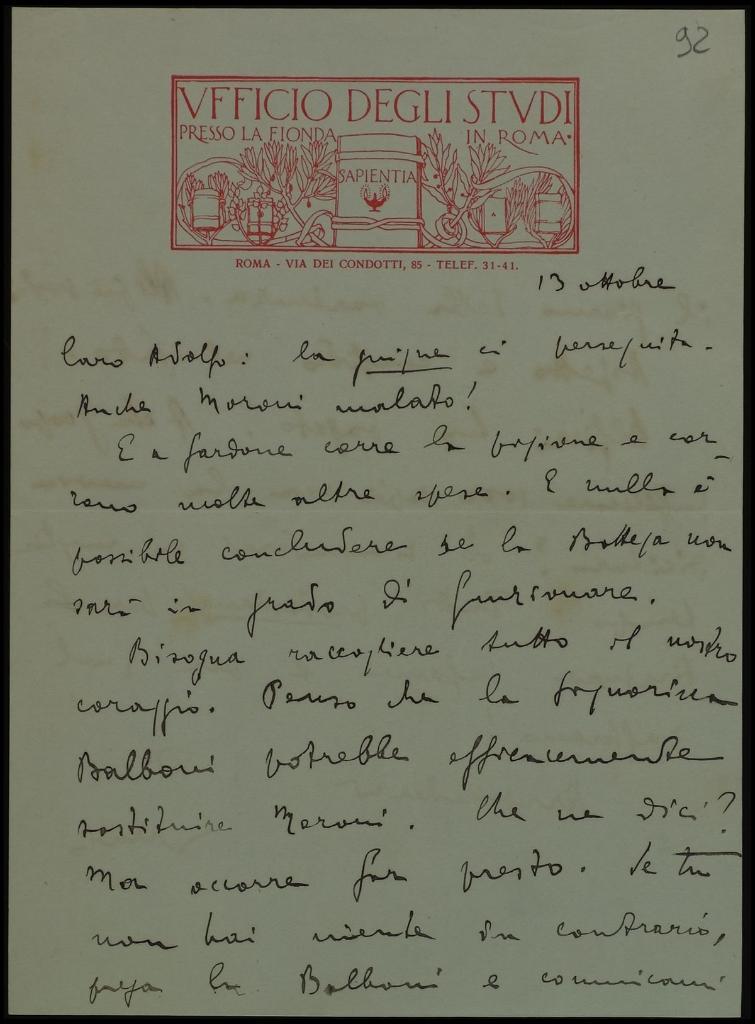 92
VFFICIO DEGLI STVDI
PRESSO LA FIONDA IN ROMA
SAPIENTIA
ROMA - VIA DEI CONDOTTI, 85 - TELEF. 31-41.
13 ottobre
Caro Adolfo: la guigne ci perseguita.
Anche Moroni malato!
E a Gardone corre la pigione e cor-
rono molte altre spese. E nulla è
possibile concludere se la Bottega non
sarà in grado di funzionare.
Bisogna raccogliere tutto il nostro
coraggio. Penso che la signorina
Balboni potrebbe efficacemente
sostituire Moroni. Che ne dici?
Ma occorre far presto. Se tu
non hai niente in contrario,
prega la Balboni e comunicami